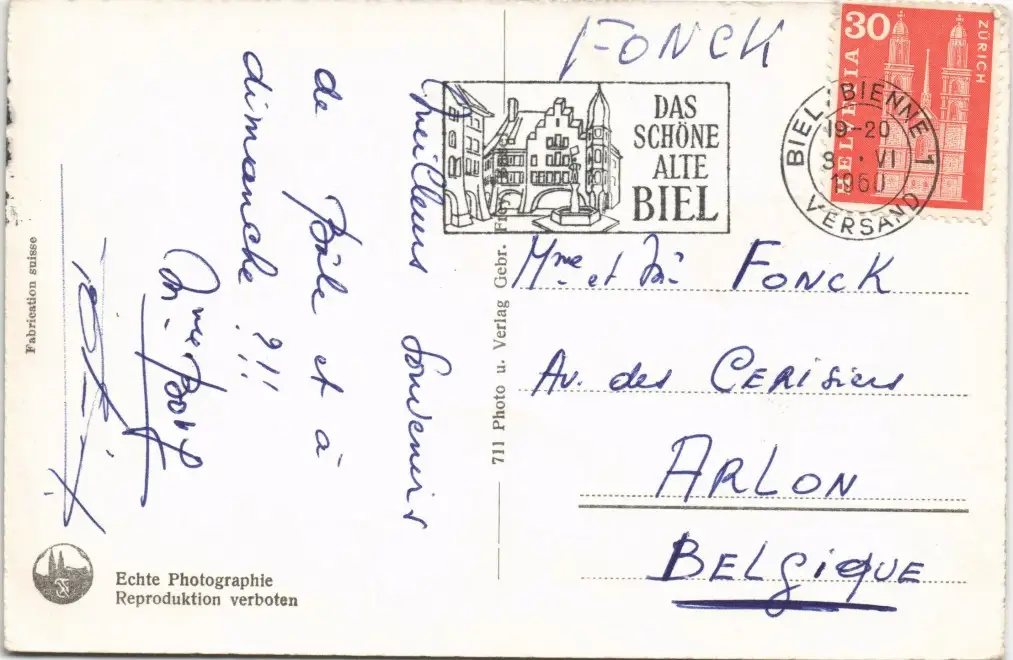 Meilleurs Souvenirs
de Bâle et à
dimanche !!!
Fabrication suisse
Echte Photographie
Reproduktion verboten
711 Photo u. Verlag Gebr.
FONCK
DAS
SCHÖNE
ALTE
BIEL
BIEL-BIENNE 1
19-20
8. VI
1960
VERSAND
30
HELVETIA
ZÜRICH
Mme et Mr FONCK
Av. des CERISiers
ARLON
BELgiqUE